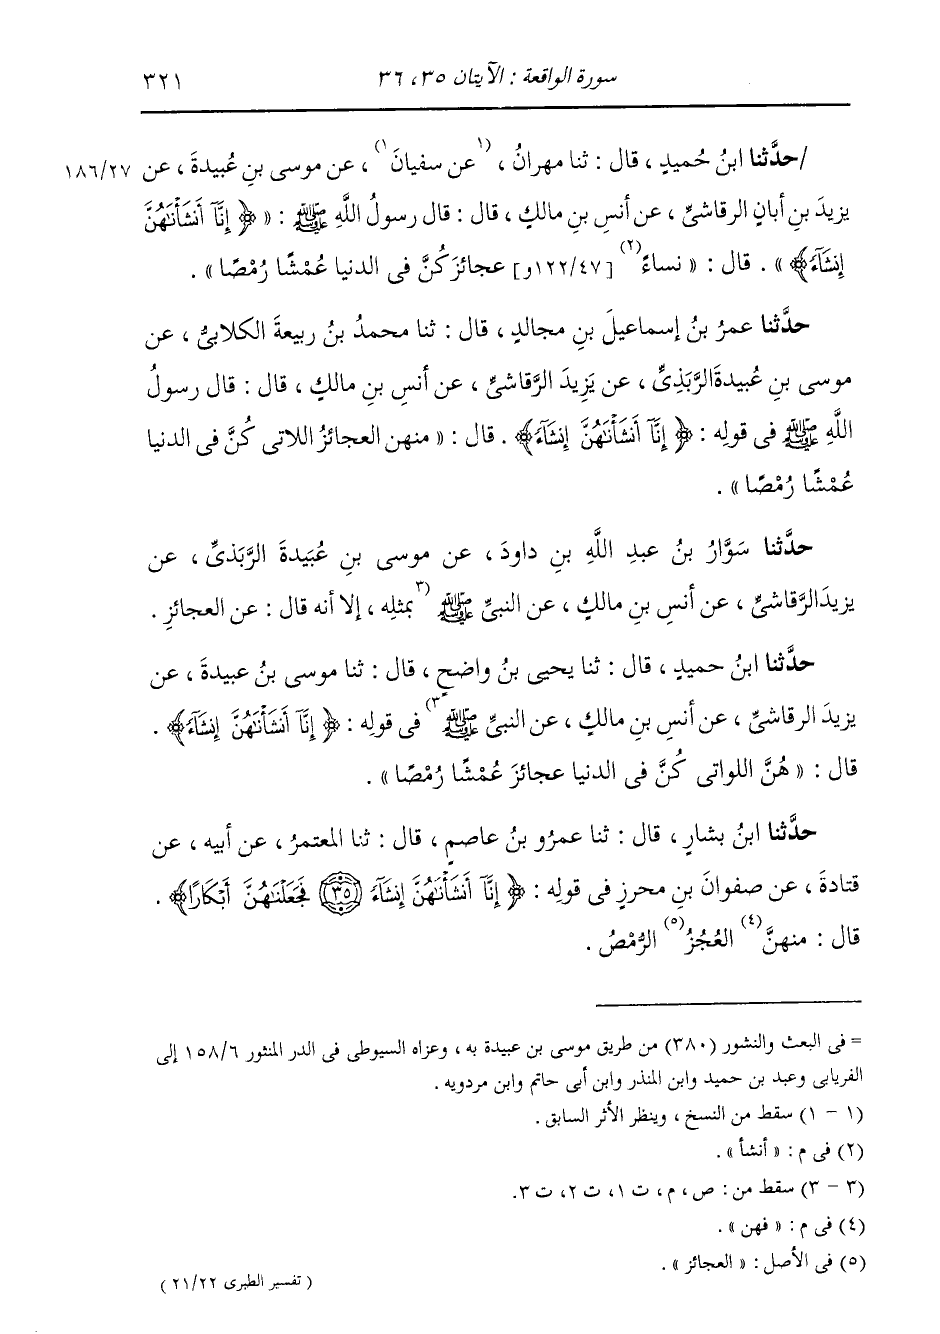 سورة الواقعة : الآيتان ٣٥ ، ٣٦
٣٢١
/حدَّثنا ابنُ حُميدٍ ، قال : ثنا مهرانُ ، (١عن سفيانَ١) ، عن موسى بنِ عُبيدةَ ، عن ١٨٦/٢٧
يزيدَ بنِ أبانٍ الرقاشىِّ ، عن أنسِ بنِ مالكٍ ، قال : قال رسولُ اللَّهِ ﷺ : « ﴿ إِنَّآ أَنشَأْنَٰهُنَّ
إِنشَآءً﴾ » . قال : « نساءً(٢) [١٢٢/٤٧و] عجائزَ كُنَّ فى الدنيا عُمْشًا رُمْصًا » .
حدَّثنا عمرُ بنُ إسماعيلَ بنِ مجالدٍ ، قال : ثنا محمدُ بنُ ربيعةَ الكلابىُّ ، عن
موسى بنِ عُبيدةَ الرَّبَذىِّ ، عن يَزِيدَ الرَّقاشىِّ ، عن أنسِ بنِ مالكٍ ، قال : قال رسولُ
اللَّهِ ﷺ فى قولِه : ﴿ إِنَّآ أَنشَأْنَٰهُنَّ إِنشَآءً﴾ . قال : « منهن العجائزُ اللاتى كُنَّ فى الدنيا
عُمْشًا رُمْصًا » .
حدَّثنا سَوَّارُ بنُ عبدِ اللَّهِ بنِ داودَ ، عن موسى بنِ عُبَيدةَ الرَّبَذىِّ ، عن
يزيدَ الرَّقاشىِّ ، عن أنسِ بنِ مالكٍ ، عن النبىِّ ﷺ (٣بمثلِه ، إلا أنه قال : عن العجائزِ .
حدَّثنا ابنُ حميدٍ ، قال : ثنا يحيى بنُ واضحٍ ، قال : ثنا موسى بنُ عبيدةَ ، عن
يزيدَ الرقاشىِّ ، عن أنسِ بنِ مالكٍ ، عن النبىِّ ﷺ ٣) فى قولِه : ﴿ إِنَّآ أَنشَأْنَٰهُنَّ إِنشَآءً﴾ .
قال : « هُنَّ اللواتى كُنَّ فى الدنيا عجائزَ عُمْشًا رُمْصًا » .
حدَّثنا ابنُ بشارٍ ، قال : ثنا عمرُو بنُ عاصمٍ ، قال : ثنا المعتمرُ ، عن أبيه ، عن
قتادةَ ، عن صفوانَ بنِ محرزٍ فى قولِه : ﴿ إِنَّآ أَنشَأْنَٰهُنَّ إِنشَآءً ﴿٣٥﴾ فَجَعَلْنَٰهُنَّ أَبْكَارًا﴾ .
قال : منهنَّ(٤) العُجُزُ(٥) الرُّمْصُ .
= فى البعث والنشور (٣٨٠) من طريق موسى بن عبيدة به ، وعزاه السيوطى فى الدر المنثور ١٥٨/٦ إلى
الفريابى وعبد بن حميد وابن المنذر وابن أبى حاتم وابن مردويه .
(١ - ١) سقط من النسخ ، وينظر الأثر السابق .
(٢) فى م : « أنشأ » .
(٣ - ٣) سقط من : ص ، م ، ت ١ ، ت ٢ ، ت ٣ .
(٤) فى م : « فهن » .
(٥) فى الأصل : « العجائز » .
( تفسير الطبرى ٢١/٢٢ )